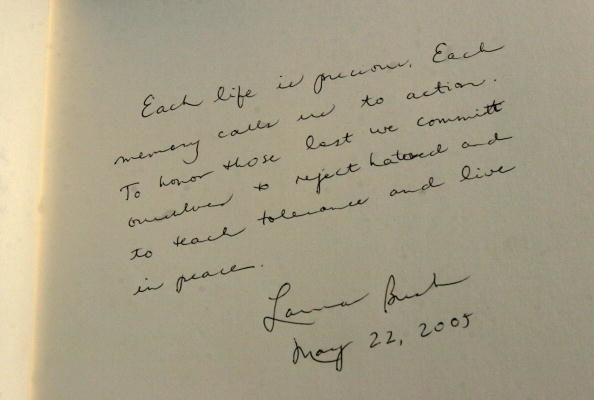 Each life is precious. Each
memory calls us to action.
To honor those lost we committ
ourselves to reject hatred and
to teach tolerance and live
in peace.
Laura Bush
May 22, 2005